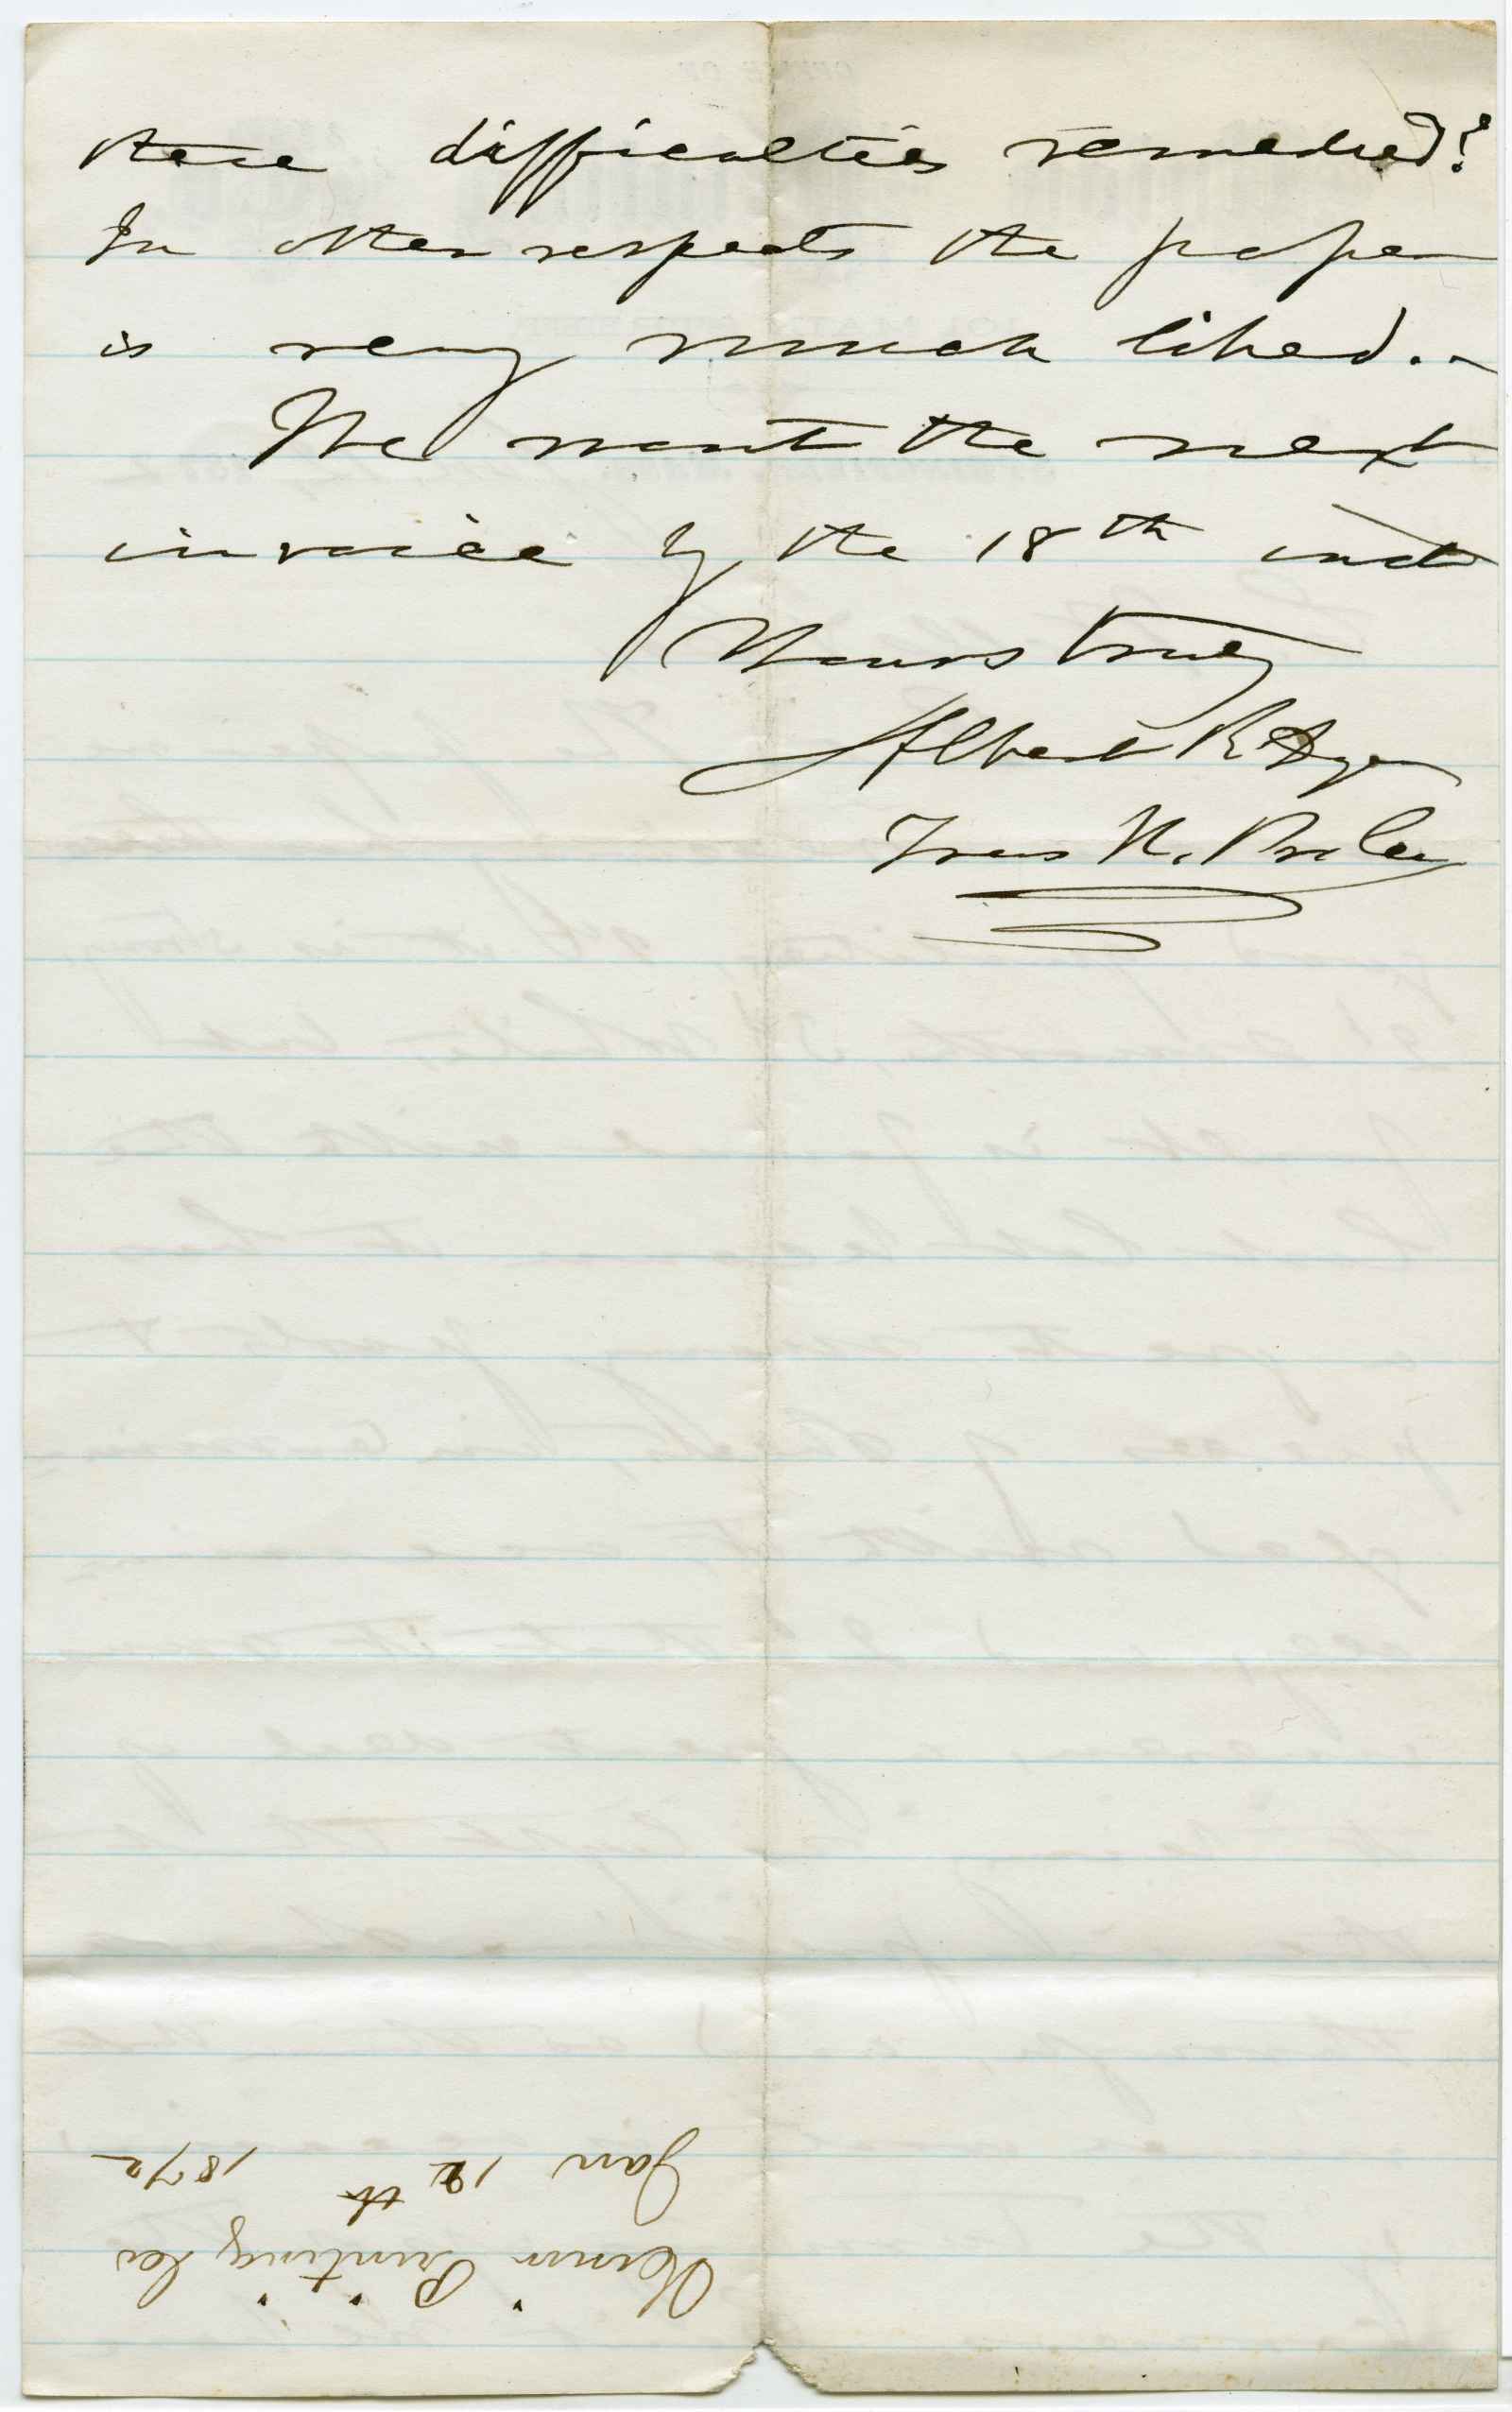 these difficulties remedied?
In other respects the paper
is very much liked.-
We want the next
invoice by the 18th inst
Yours truly
Albert R
Treas N.
Jan 12th 1872
Printing Co